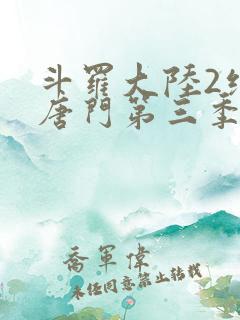 斗羅大陸2
唐門第三季
喬軍偉
未经同意禁止转载